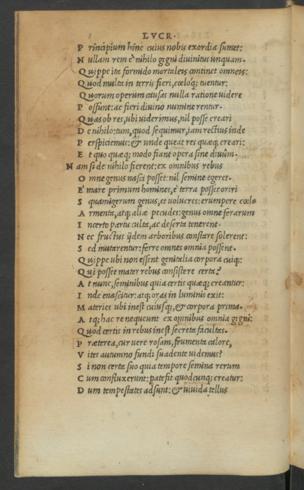 LVCR.
P rincipium hinc cuius nobis exordia sumet;
N ullam rem è nihilo gigni diuinitus unquam.
Q uippe ita formido mortaleis continet omneis:
Q uod multa in terris fieri, cœloq; tuentur;
Q uorum operum causas nulla ratione uidere
P ossunt: ac fieri diuino numine rentur.
Q uas ob res, ubi uiderimus, nil posse creari
D e nihilo: tum, quod sequimur, iam rectius inde
P erspiciemus: & unde queat res quæq. creari:
E t quo quæq; modo fiant opera sine diuûm.
N am si de nihilo fierent: ex omnibus rebus
O mne genus nasci posset: nil semine egeret.
E' mare primum homines, è terra posset oriri
S quamigerum genus, et uolucres: erumpere cœlo
A rmenta, atq; aliæ pecudes: genus omne ferarum
I ncerto partu culta, ac deserta tenerent.
N ec fructus ijdem arboribus constare solerent:
S ed mutarentur: ferre omnes omnia possent.
Q uippe ubi non essent genitalia corpora cuiq;
Q ui posset mater rebus consistere certa?
A t nunc, seminibus quia certis quæq; creantur:
I nde enascitur: atq; oras in luminis exit:
M ateries ubi inest cuiusq;, et corpora prima.
A tq; hac re nequeunt ex omnibus omnia gigni:
Q uod certis in rebus inest secreta facultas.
P ræterea, cur uere rosam, frumenta calore,
V ites autumno fundi suadente uidemus?
S i non certa suo quia tempore semina rerum
C um confluxerunt: patefit quodcunq; creatur:
D um tempestates adsunt: & uiuida tellus